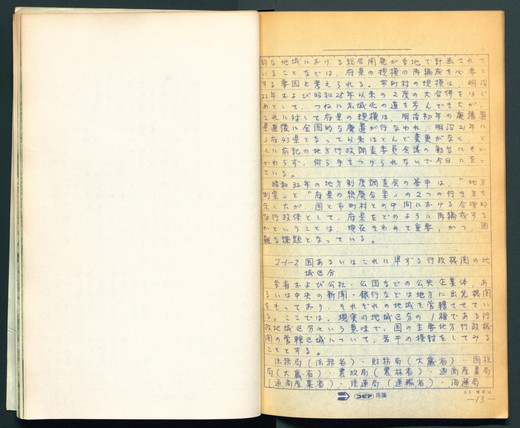 的な地域における総合開発が各地で計画されて
いることなどは、府県の規模の再編成を必要と
する要因と考えられる。市町村の規模は、明治
21年および昭和28年以来の2度の大合併をはじ
めとして、つねに広域化の道を歩んできたが、
これに対して府県の規模は、明治初年の廃藩置
県直後に全国的な廃置が行なわれ、明治21年に
3府43県となって以来ほとんど変更がなく、と
くに前記の地方行政調査委員会議の勧告にもか
かわらず、何ら手をつけられないで今日に至っ
ている。
昭和32年の地方制度調査会の答申は、"地方
制案"と"府県の統廃合案"の2つの行き方を
示したが、国と市町村との中間における合理的
な行政体として、府県をどのように再編成する
かということは、現在きわめて重要、かつ、困
難な課題となっている。
2-1-2 国あるいはこれに準ずる行政機関の地
域区分
各省および公社・公団などの公共企業体、あ
るいは中央の新聞・銀行などは地方に出先機関
をもっており、それぞれの地域を管轄させてい
る。ここでは、現実の地域区分の1種である行
政地域区分という意味で、国の主要地方行政機
関の管轄区域について、若干の検討をしてみる
こととする。
法務局(法務省)・財務局(大蔵省)・国税
局(大蔵省)・農政局(農林省)・通商産業局
(通商産業省)・陸運局(運輸省)・海運局
コピア
-13-